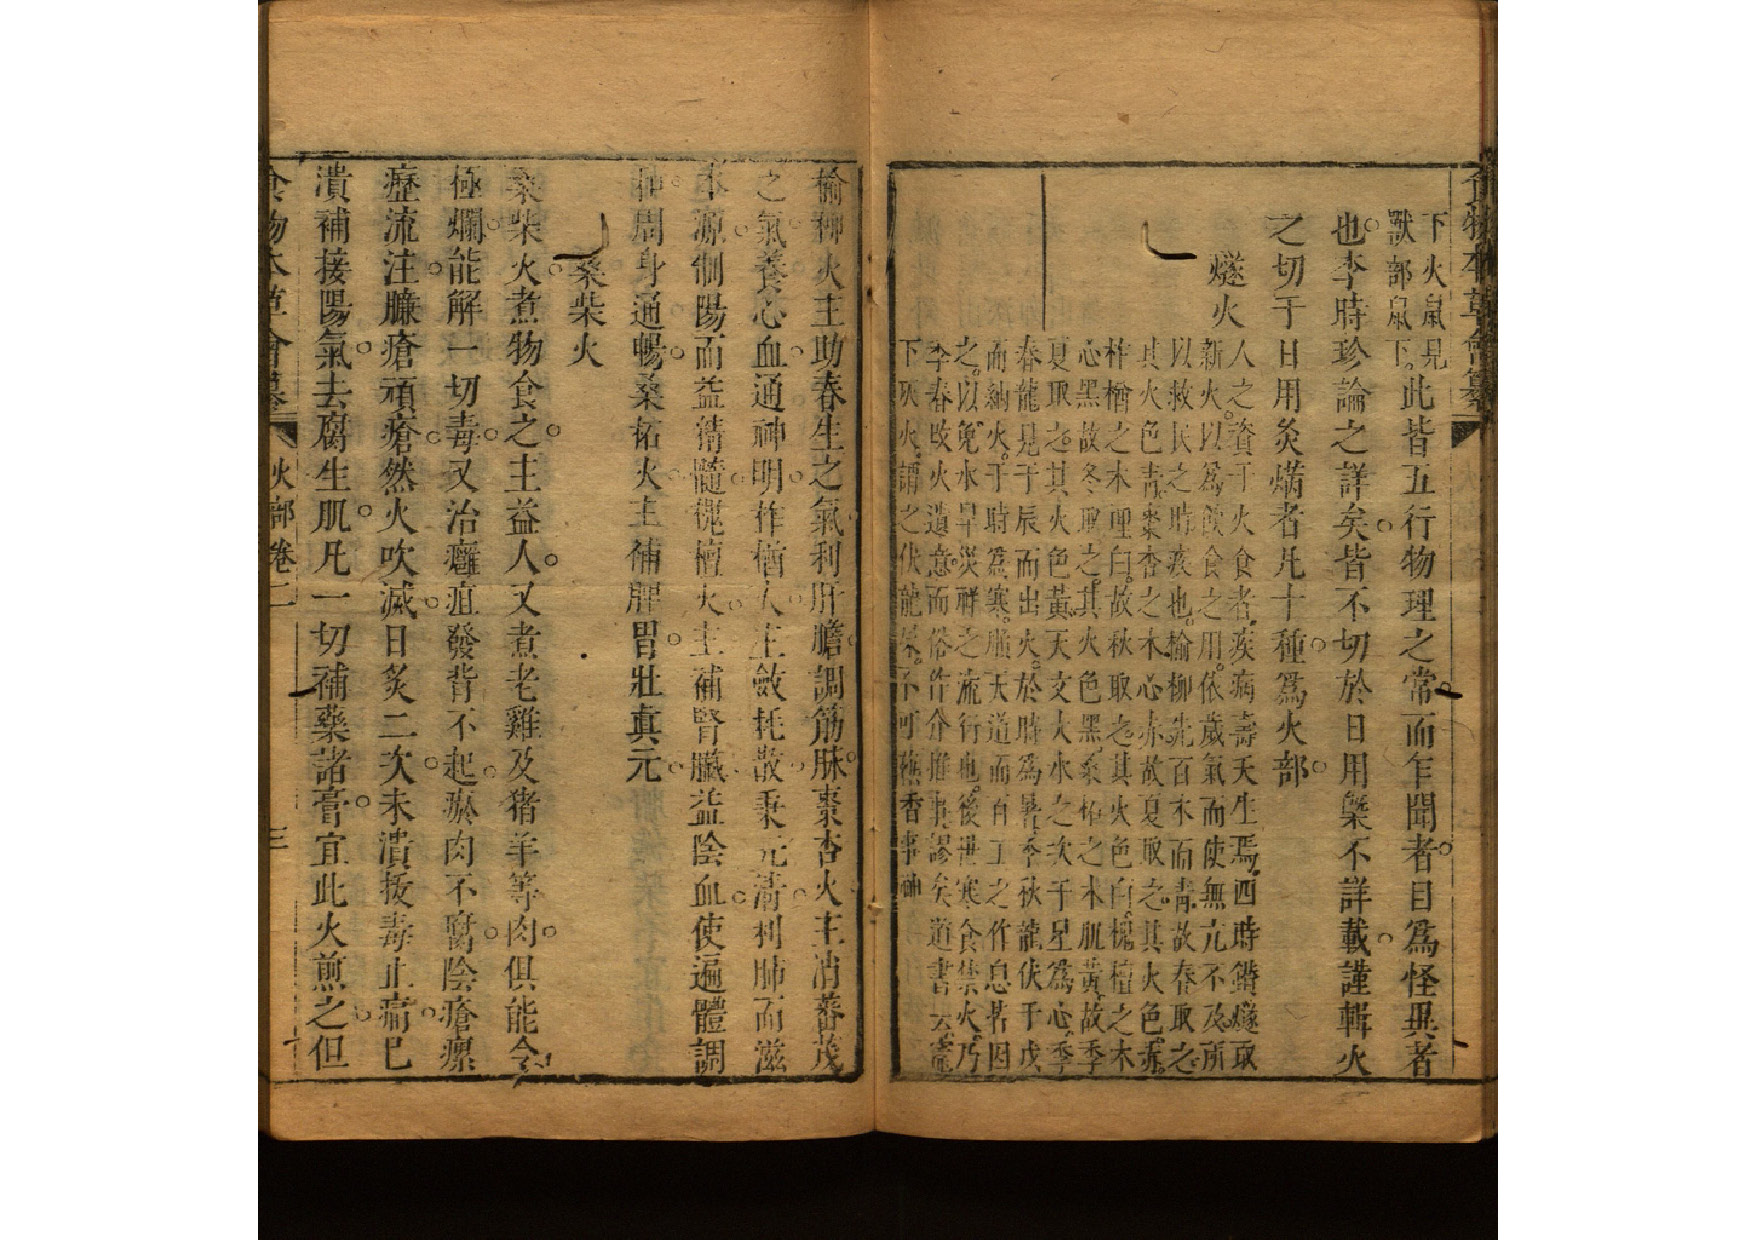 食物本草會纂
下火鼠見
獸部鼠下。此皆五行物理之常而乍聞者目爲怪異者
也李時珍論之詳矣皆不切於日用槩不詳載謹輯火
之切于日用灸焫者凡十種爲火部
燧火
人之資于火食者疾病壽夭生焉四時鑽燧取
新火以爲飲食之用依歲氣而使無亢不及所
以救民之時疾也榆柳先百木而青故春取之
其火色青棗杏之木心赤故夏取之其火色赤
柞楢之木理白故秋取之其火色白槐檀之木
心黑故冬取之其火色黑桑柘之木肌黃故季
夏取之其火色黃天文大火之次于星爲心季
春龍見于辰而出火於時爲暑季秋龍伏于戌
而納火于時爲寒順天道而百工之作息皆因
之以免水旱災祥之流行也後世寒食禁火乃
季春改火遺意而俗作介推事謬矣道書云竈
下灰火謂之伏龍屎不可爇香事神
榆柳火主助春生之氣利肝膽調筋脉棗杏火主消蕃茂
之氣養心血通神明柞楢火主斂耗散秉元清利肺而滋
本源制陽而益精髓槐檀火主補腎臟益陰血使遍體調
和周身通暢桑柘火主補脾胃壯真元
桑柴火
桑柴火煮物食之主益人又煮老雞及猪羊等肉俱能令
極爛能解一切毒又治癰疽發背不起瘀肉不腐陰瘡瘰
癧流注臁瘡頑瘡然火吹滅日炙二次未潰拔毒止痛已
潰補接陽氣去腐生肌凡一切補藥諸膏宜此火煎之但
食物本草會纂
火部卷二
三